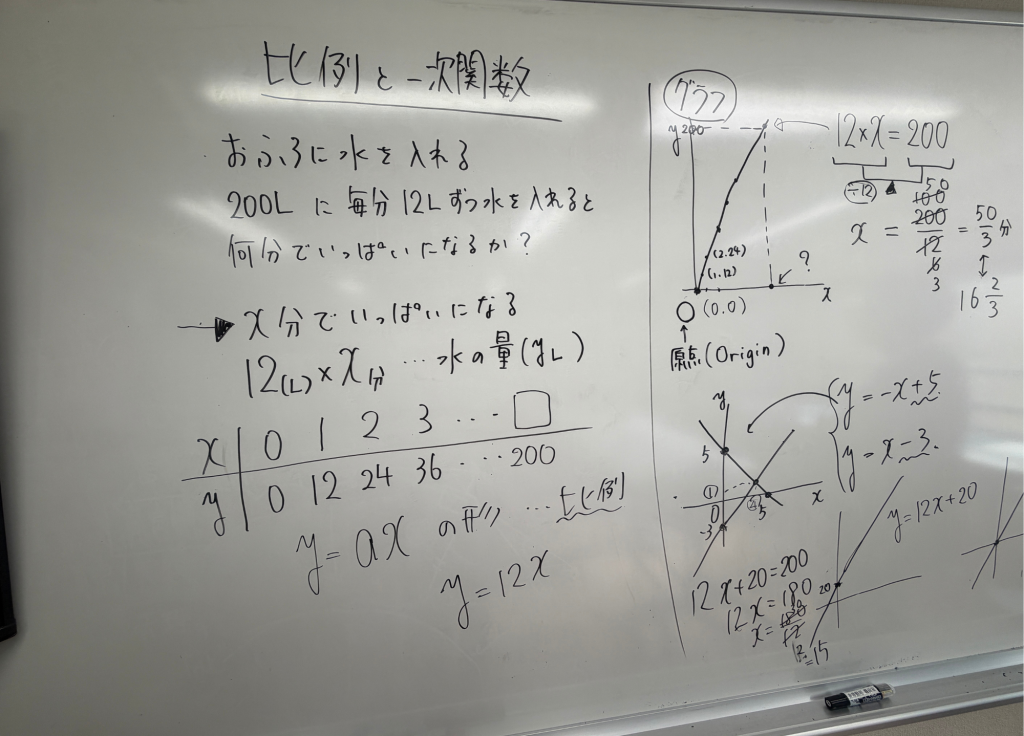 比例と一次関数
おふろに水を入れる
200Lに毎分12Lずつ水を入れると
何分でいっぱいになるか?
x分でいっぱいになる
12(L)×x分 …水の量(yL)
x 0 1 2 3 … □
y 0 12 24 36 … 200
y=axの形 …比例
y=12x
グラフ
y 200
(2.24)
(1.12)
(0.0)
?
x
O
原点(Origin)
12×x=200
÷12
50
100
x = 200/12 = 50/3分
6
3
16 2/3
y
5
①
0
5
-3
x
y=-x+5
y=x-3
y=12x+20
20
12x+20=200
12x=180
x=180/12
=15